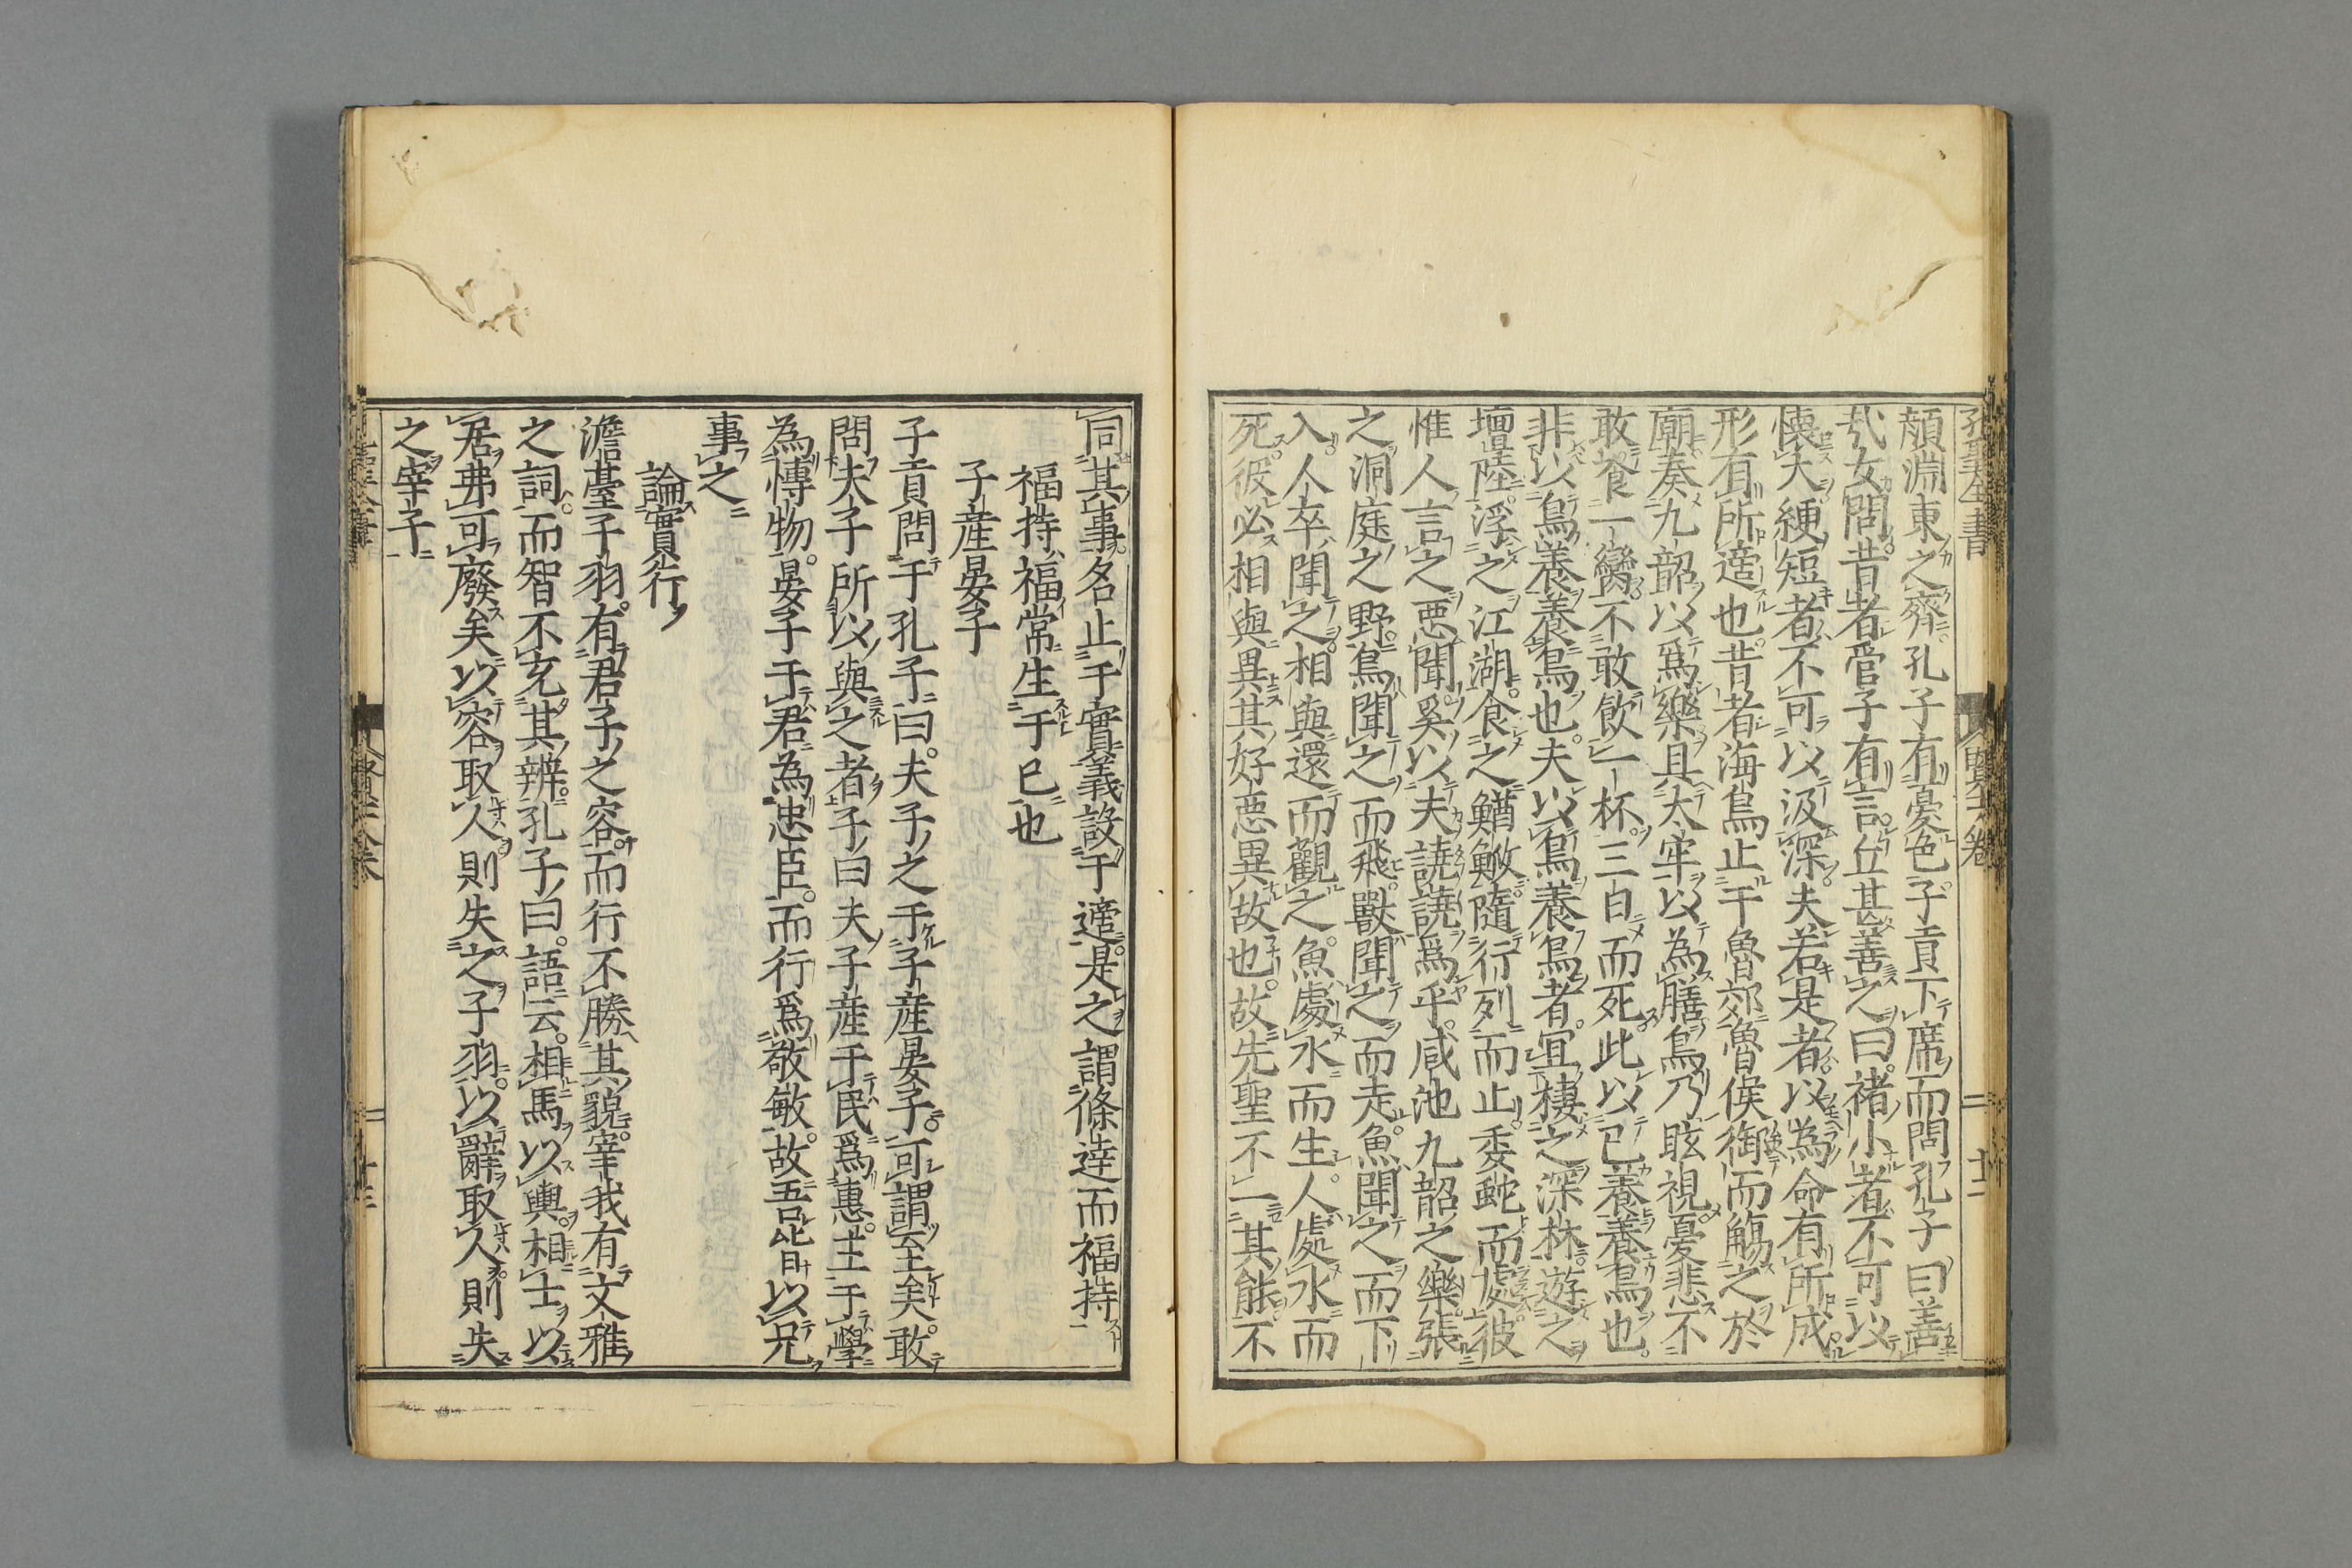 顏淵東之齊孔子有憂色子貢下席而問孔子曰善
哉女問昔者管子有言丘甚善之曰褚小者不可以
懷大綆短者不可以汲深夫若是者以為命有所成
形有所適也昔者海鳥止于魯郊魯侯御而觴之於
廟奏九韶以爲樂具太牢以為膳鳥乃眩視憂悲不
敢飡一臠不敢飲一杯三日而死此以己養養鳥也
非以鳥養養鳥也夫以鳥養鳥者宜棲之深林遊之
壇陸浮之江湖食之鰌鰷隨行列而止委蛇而處彼
惟人言之惡聞奚以夫譊譊爲乎咸池九韶之樂張
之洞庭之野鳥聞之而飛獸聞之而走魚聞之而下
入人卒聞之相與還而觀之魚處水而生人處水而
死彼必相與異其好惡異故也故先聖不一其能不
同其事名止于實義設于適是之謂條達而福持
福持福常生于已也
子產晏子
子貢問于孔子曰夫子之于子產晏子可謂至矣敢
問夫子所以與之者子曰夫子產于民爲惠主于學
為博物晏子于君為忠臣而行爲敬敏故吾皆以兄
事之
論實行
澹臺子羽有君子之容而行不勝其貌宰我有文雅
之詞而智不充其辨孔子曰語云相馬以輿相士以
居弗可廢矣以容取人則失之子羽以辭取人則失
之宰予